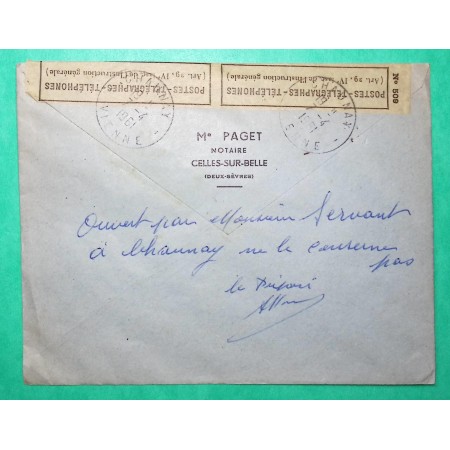 POSTES-TÉLÉGRAPHES-TÉLÉPHONES
(Art. 29, IVe de l'Instruction générale)
POSTES-TÉLÉGRAPHES-TÉLÉPHONES
(Art. 29, IVe de l'Instruction générale)
No 509
CHAUNAY
VIENNE
Me PAGET
NOTAIRE
CELLES-SUR-BELLE
(DEUX-SÈVRES)
Ouvert par Monsieur Servant
à Chaunay ne le concerne
pas
le Préposé